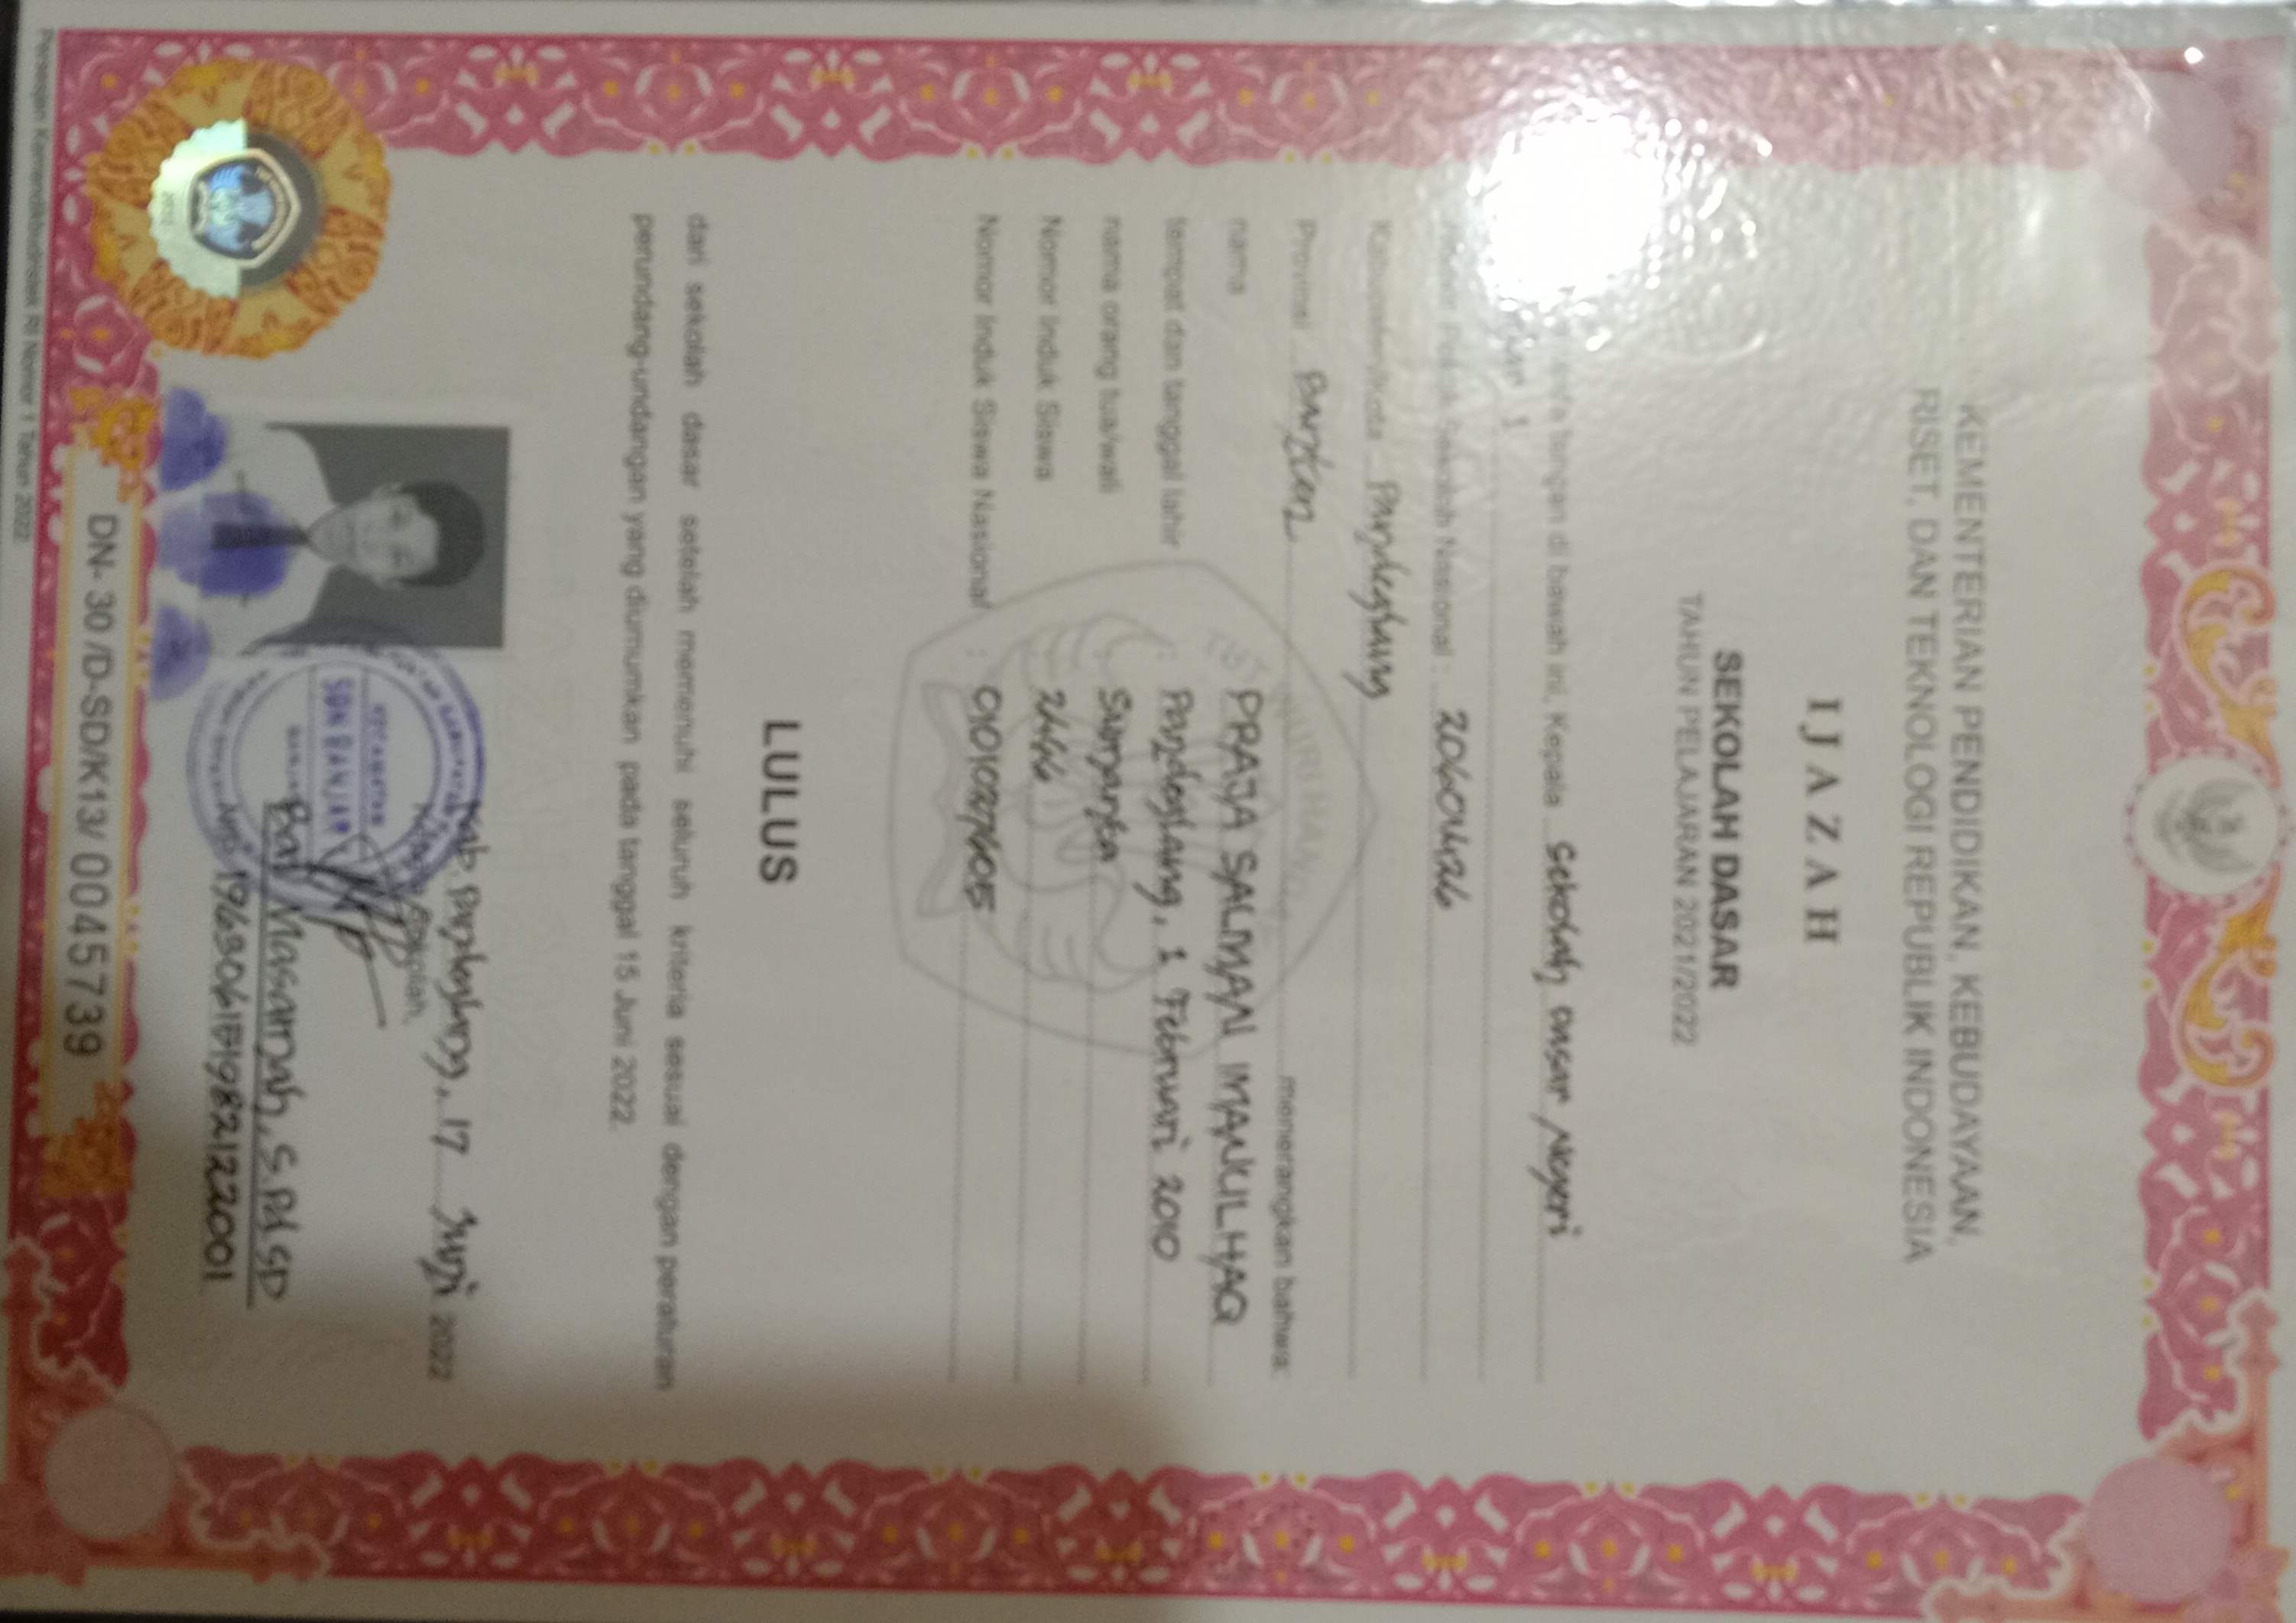 KEMENTERIAN PENDIDIKAN, KEBUDAYAAN,
RISET, DAN TEKNOLOGI REPUBLIK INDONESIA
IJAZAH
SEKOLAH DASAR
TAHUN PELAJARAN 2021/2022
tangan di bawah ini, Kepala Sekolah Dasar Negeri
1
Nomor Pokok Sekolah Nasional :
Kabupaten/Kota Pandeglang
Provinsi Banten menerangkan bahwa:
nama PRAJA SALMAN IMANULHAQ
tempat dan tanggal lahir : Pandeglang, 1 Februari 2010
nama orang tua/wali Sumanta
Nomor Induk Siswa
Nomor Induk Siswa Nasional : 0101027605
LULUS
dari sekolah dasar setelah memenuhi seluruh kriteria sesuai dengan peraturan
perundang-undangan yang diumumkan pada tanggal 15 Juni 2022.
Kab. Pandeglang, 17 Juni 2022
Kepala Sekolah,
KECAMATAN
SDN BANJAR
BANJAR
Masamah, S.Pd.SD
NIP. 196306151982122001
DN- 30 /D-SD/K13/ 0045739
Persesjen Kemendikbudristek RI Nomor 1 Tahun 2022